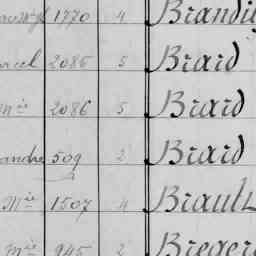 1770 4 Brandi
rcel 2085 5 Braid
Mie 2086 5 Braid
andre 509 2 Braid
Mie 1507 4 Brault
Mie 945 2 Breger